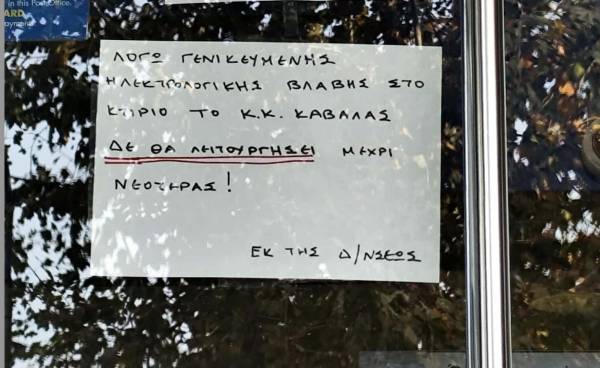 in this Post Office.
ΛΟΓΩ ΓΕΝΙΚΕΥΜΕΝΗΣ
ΗΛΕΚΤΡΟΛΟΓΙΚΗΣ ΒΛΑΒΗΣ ΣΤΟ
ΚΤΙΡΙΟ ΤΟ Κ.Κ. ΚΑΒΑΛΑΣ
ΔΕ ΘΑ ΛΕΙΤΟΥΡΓΗΣΕΙ ΜΕΧΡΙ
ΝΕΟΤΕΡΑΣ!
ΕΚ ΤΗΣ Δ/ΝΣΕΩΣ